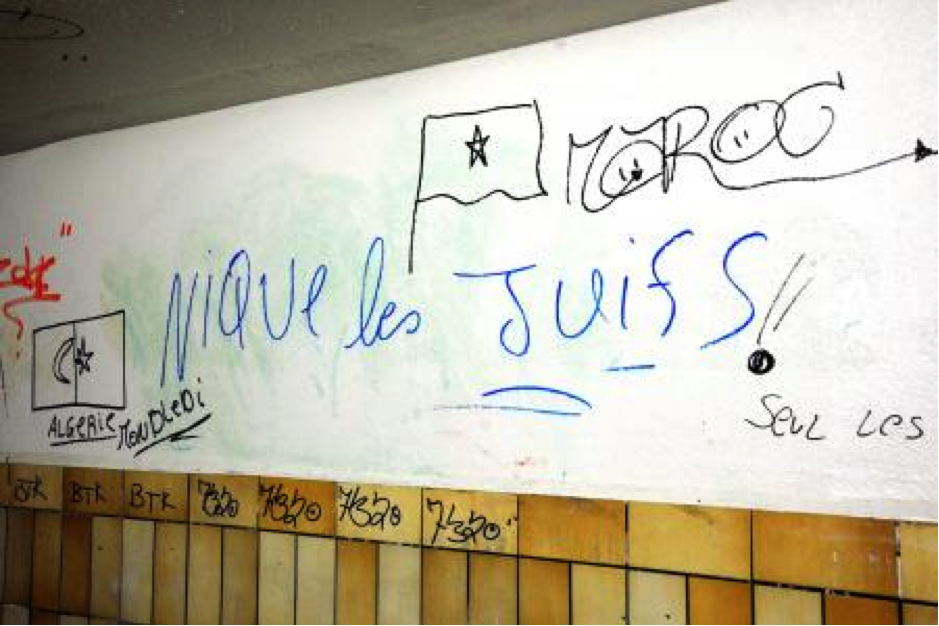 MAROC
NIQUE les JUIFS !!
ALGERIE
SEUL LES
BTK BTK BTK 7/320 7/320 7/320 7/320